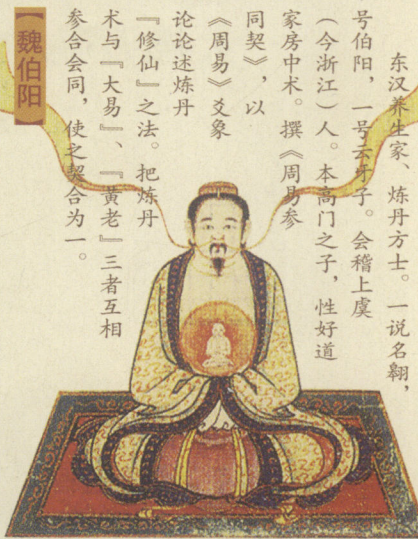 【魏伯阳】
东汉养生家、炼丹方士。一说名翱，
号伯阳，一号云牙子。会稽上虞
（今浙江）人。本高门之子，性好道
家房中术。撰《周易参
同契》，以
《周易》爻象
论论述炼丹
『修仙』之法。把炼丹
术与『大易』、『黄老』三者互相
参合会同，使之契合为一。